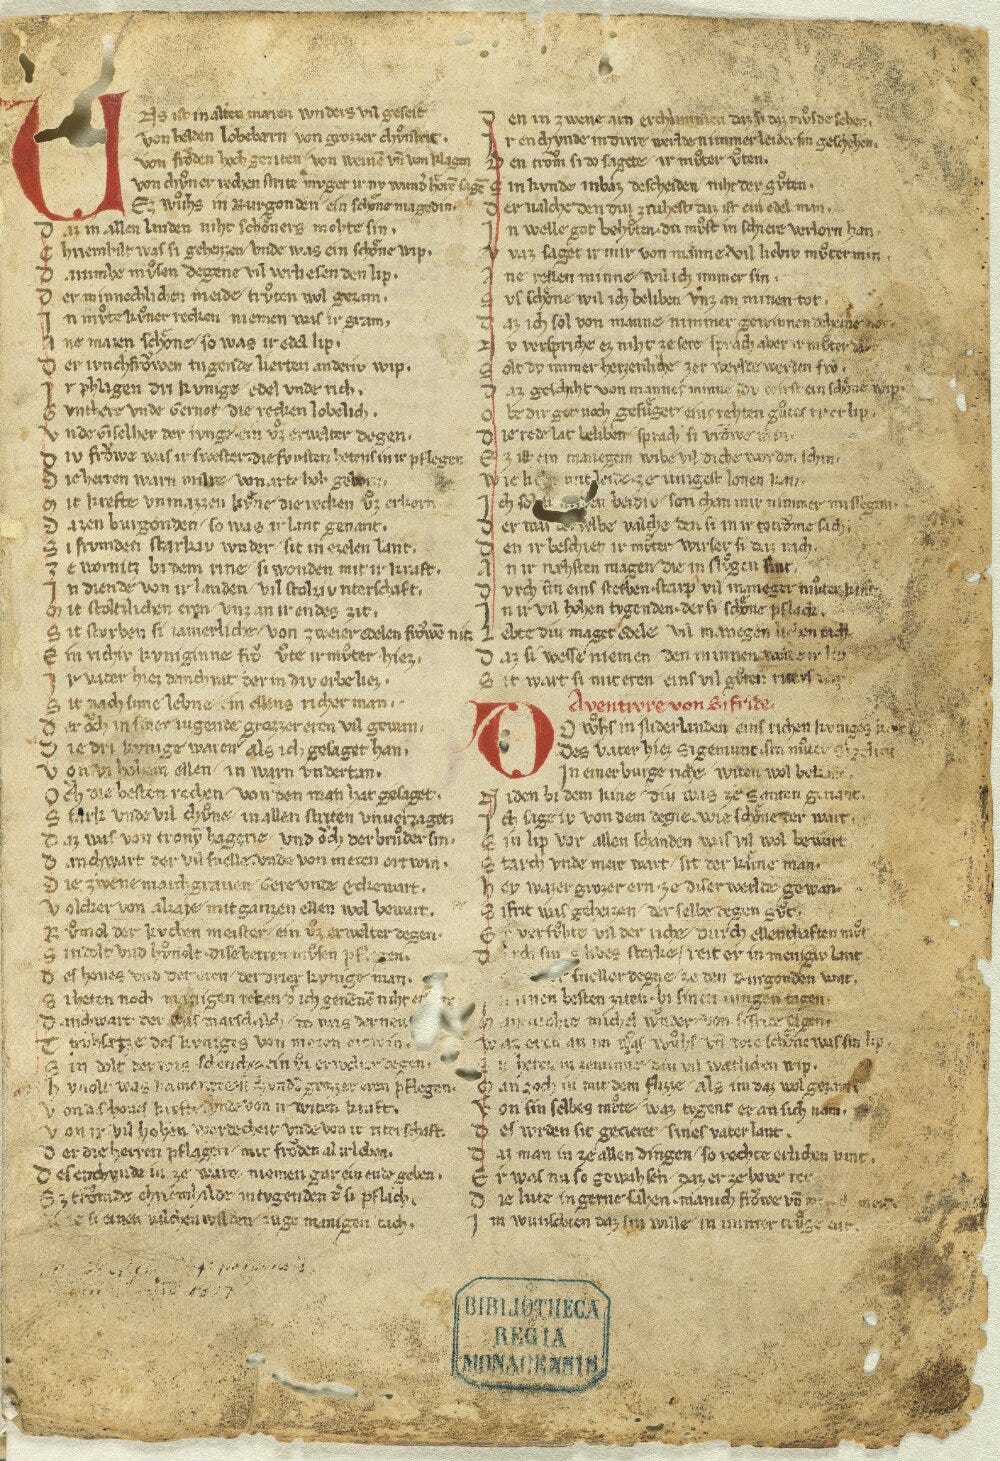 U
Ns ist in alten maren wnders vil geseit
von helden lobebern von grozzer chůnheit.
von frŏden hoch geziten von weinē vn̄ von klagen
von chůner rechen strite mvget ir nv wund̓ hŏrē sagē
Ez wůhs in Burgonden ein schŏne magedin.
D az in allen landen niht schŏners mohte sin.
C hriemhilt was si geheizen vnde was ein schŏne wip.
D arumbe mvsen degene vil verliesen den lip.
D er minnechlichen meide trůten wol gezam.
I n můte kůner recken niemen was ir gram.
A ne mazen schŏne so was ir edel lip.
D er ivnchfrŏwen tugende zierten anderiv wip.
I r phlagen dri kvnige edel vnde rich.
G vnthere vnde Gernot die recken lobelich.
V nde Giselher der ivnge ein vz erwelter degen.
D iv frŏwe was ir swester die fvrsten hetens in ir pflegen
D ie herren warn milte von arte hoh geborn.
M it krefte vnmazzen kvne die recken vz erkorn
D a zen burgonden so was ir lant genant.
S i frumden starkiv wnder sit in ezelen lant.
Z e wormtz bi dem rine si wonden mit ir kraft.
I n diende von ir landen vil stolziv ritterschaft.
M it stoltzlichen eren vnz an ir endes zit.
S it sturben si iamerliche von zweier edelen frŏwē nit.
E in richiv kvniginne frŏ ůte ir můter hiez.
I r vater hiez danchrat der in div erbe liez.
S it nach sime lebne ein ellens richer man.
D er ŏch in siner iugende grozzer eren vil gewan.
D ie dri kvnige waren als ich gesaget han.
V on vil hohem ellen in warn vndertan.
O ch die besten rechen von den man hat gesaget.
S tark vnde vil chůne in allen striten vnuerzaget.
D az was von trony hagene vnd ŏch der brůder sin.
D anchwart der vil snelle vnde von metzen ortwin.
D ie zwene marchgrauen Gere vnde Eckewart.
V olcker von alzaie mit ganzen ellen wol bewart.
R ůmol der kvchen meister ein vz erwelter degen.
S indolt vnd hůnolt dise herren mvsen pflegen.
D es houes vnd der eren der drier kvnige man.
S i heten noch manigen recken d̓ ich genennē niht
D anchwart der was marschalch do was der neue
T ruhsetze des kvniges von metzen ortwin.
S indolt der was schenche ein vz erwelter degen.
H vnolt was kamerere si kvnden grozzer eren pflegen.
V on des houes krefte vnde von ir witen kraft.
V on ir vil hohen werdecheit vnde von ir ritterschaft.
D er die herren pflagen mit frŏden al ir leben.
D es enchvnde iv ze ware niemen gar ein ende geben.
Ez trŏmde chriemhilde in tvgenden der si pflach.
si einen valchen wilden zuge manigen tach.
D en in zwene arn erchrummen daz si daz mvsde sehen.
I r enchvnde in dirre werlde nimmer leider sin geschehen.
D en trŏm si do sagete ir můter ůten.
S in kvnde in baz descheiden niht der gůten.
D er valche den div zivhest daz ist ein edel man.
I n welle got behůten dv můst in schiere verlorn han.
V vaz saget ir mir von manne vil liebiv můter min
A ne recken minne wil ich immer sin.
S vs schŏne wil ich beliben vnz an minen tot.
D az ich sol von manne nimmer gewinnen deheine not.
N v versprich ez niht ze sere sprach aber ir můter
S olt dv immer herzenliche zer werlde werden fro.
D az geschiht von mannes minne dv wirst ein schŏne wip.
O b dir got noch gefůget eins rehten gůtes riters lip.
D ie rede lat beliben sprach si vrŏwe min.
E z ist an manegem wibe vil diche worden schin.
W ie liebe mit leide ze iungest lonen kan.
I ch sol si miden beidiv son chan mir nimmer missegan.
D er was der selbe valche den si in ir trŏme sach.
D en ir beschiet ir můter wi ser si daz rach.
A n ir næhsten magen die in slůgen sint.
D vrch sin eins sterben starp vil maneger můter kint.
I n ir vil hohen tvgenden der si schŏne pflach.
L ebte div maget edele vil manegen lieben tach.
D az si wesse niemen den minnen wolde ir lip
S it wart si mit eren eins vil gůten
Aventivre von Sifride
D
O wůhs in niderlanden eins richen kvniges
Des vater hiez Sigemunt sin můter Sigelint
In einer burge riche witen wol bekant
N iden bi dem rine div was ze Santen genant.
I ch sage iv von dem degne wie schŏne der wart.
S in lip vor allen schanden was vil wol bewart
S tarch vnde mere wart sit der kůne man.
H ey waz er grozer ern ze diser werlde gewan.
S ifrit was geheizen der selbe degen gůt.
E r versůhte vil der riche durch ellenthaften můt
D vrch sines libes sterke reit er in menigiv lant
sneller degne ze den Burgonden vant.
sinen besten ziten bi sinen iungen tagen.
man mohte michel wunder von Sifride sagen.
W az eren an im wůhs vn̄ wie schŏne was sin lip.
S it heten in ze minne div vil wætlichen wip.
M an zoch in mit dem flize als im daz wol gezam
V on sin selbes můte waz tvgent er an sich nam.
D es wrden sit gezieret sines vater lant.
D az man in ze allen dingen so rechte erlichen vant.
E r was nu so gewahsen daz er ze houe
D ie lute in gerne sahen manich frŏwe vn̄
I m wunschten daz sin wille in immer trůge dar.
BIBLIOTHECA
REGIA
MONACENSIS